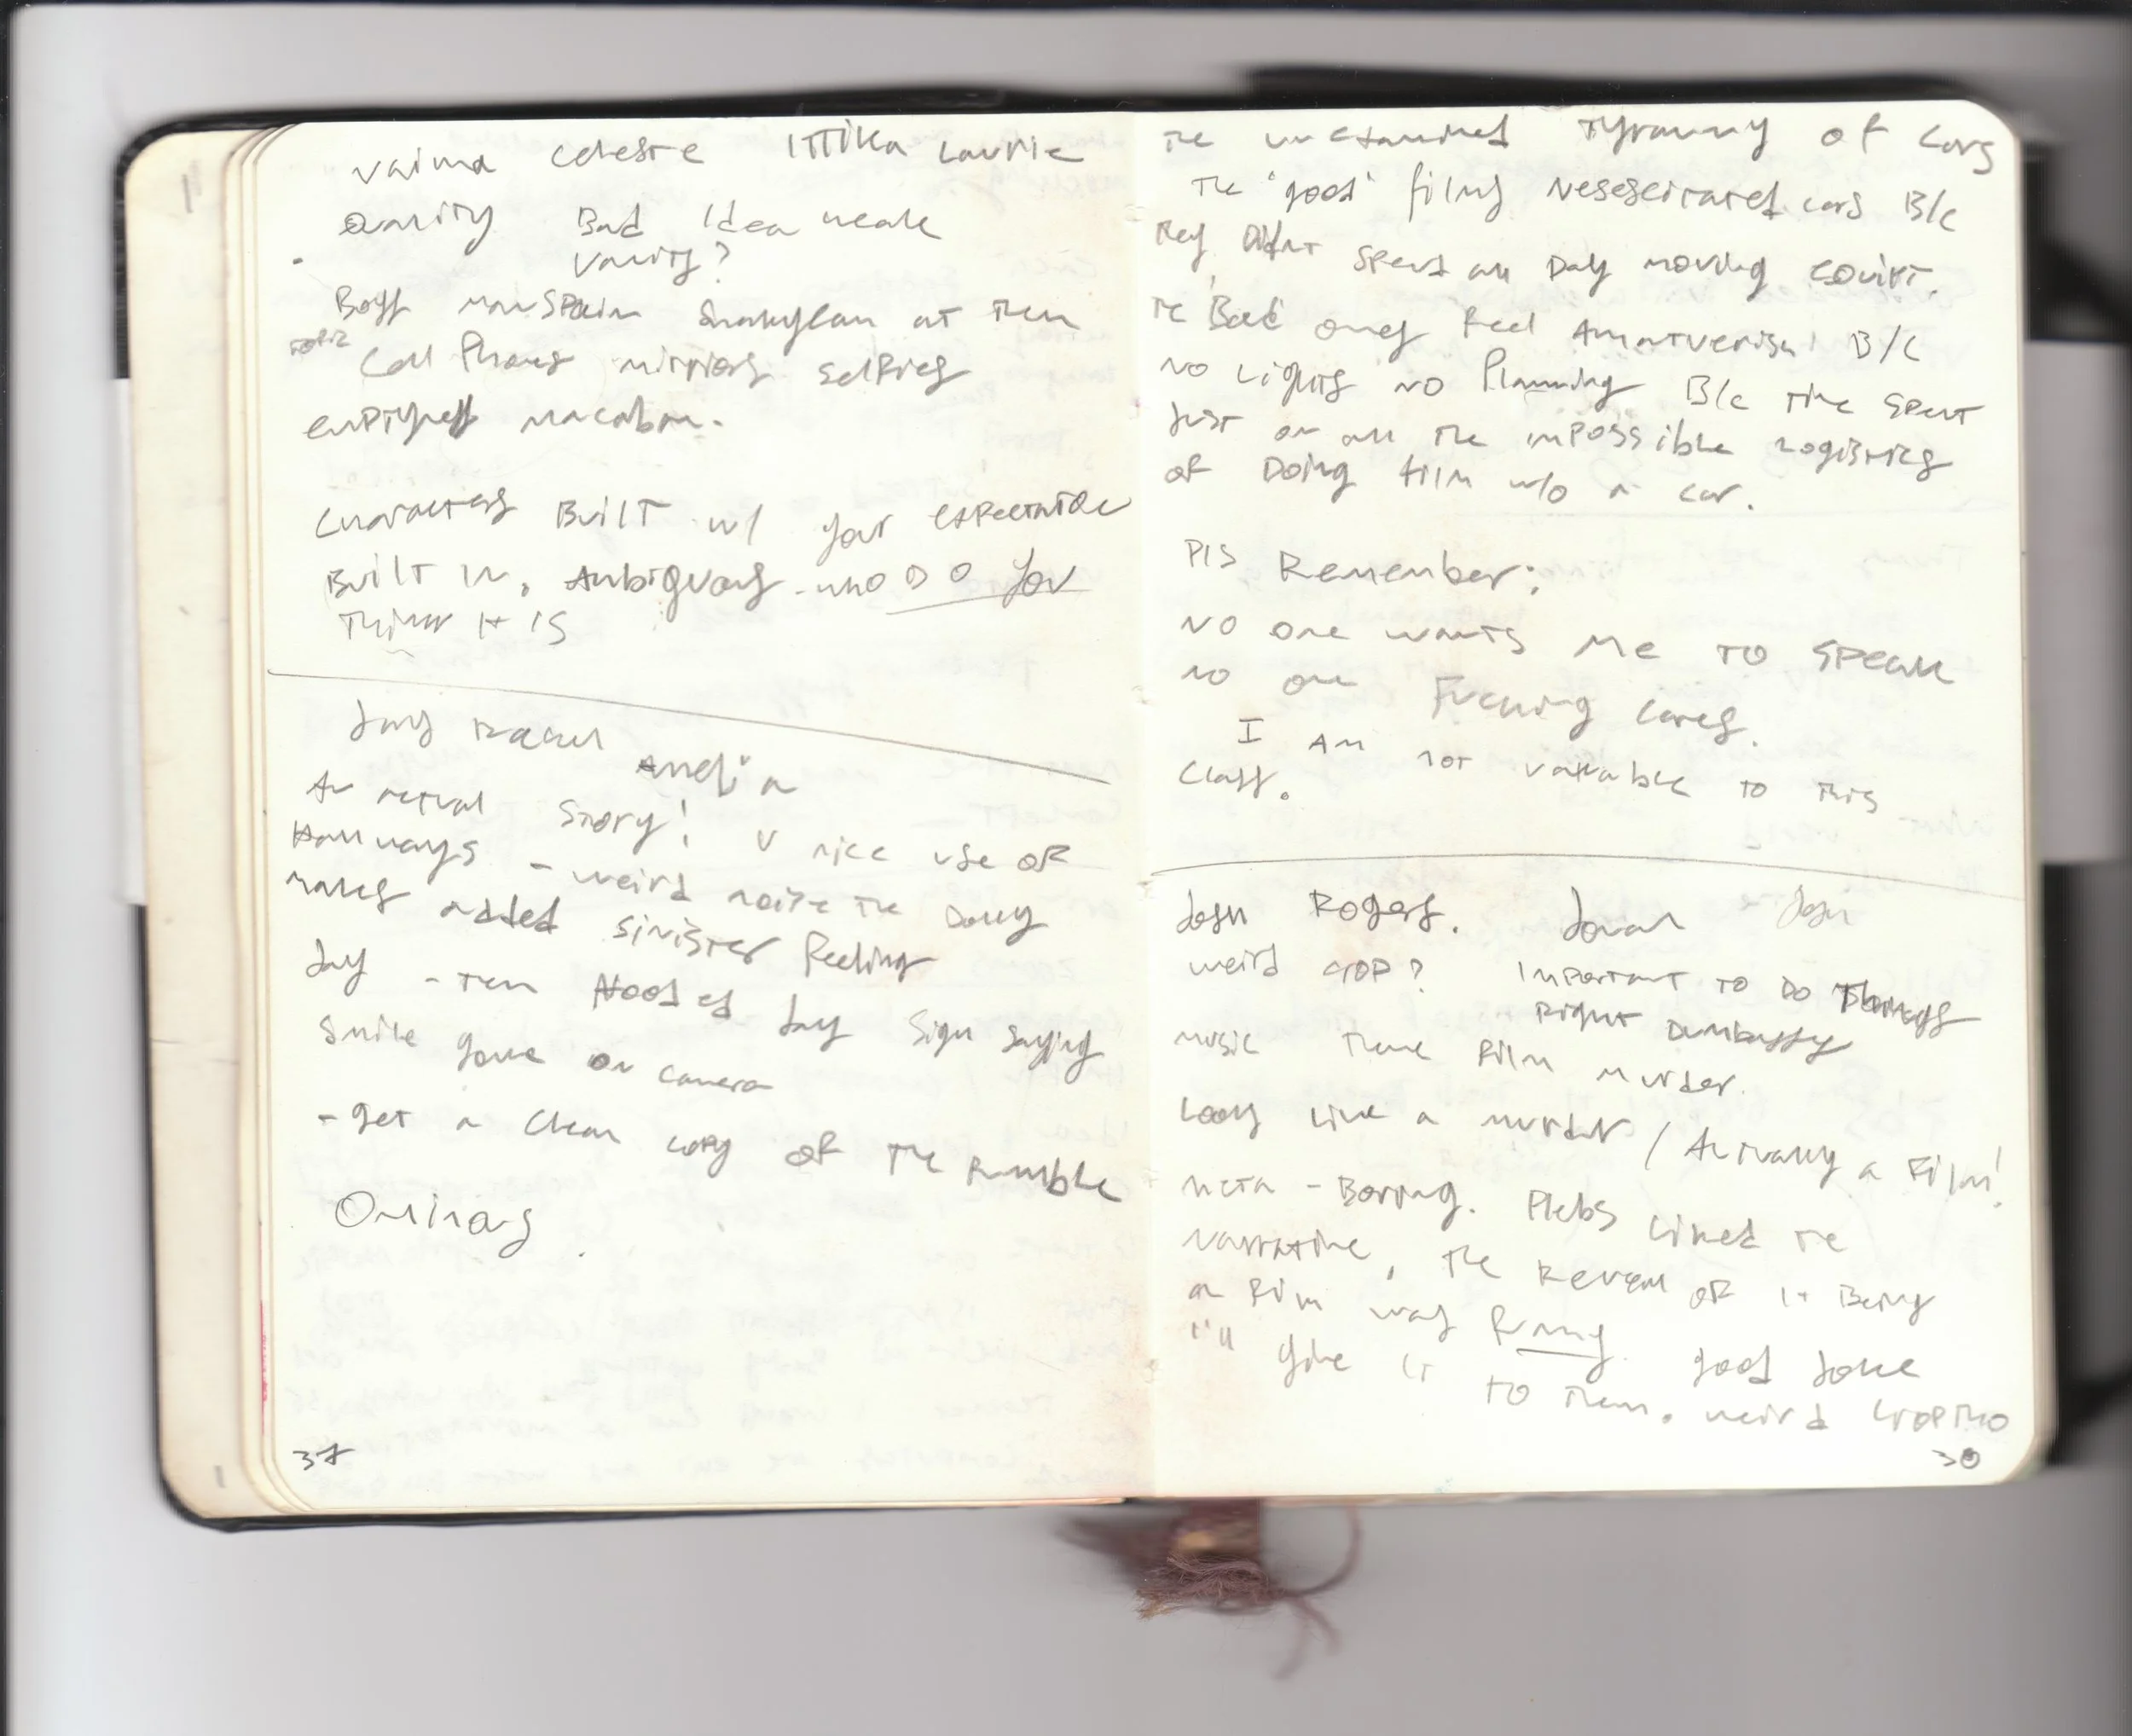 vaima celeste ittika Laurie
Quality Bad Idea weak
vanity?
Boys at their
Cell Phones mirrors selfies
emptyness macabre.
Characters Built w/ your expectation
Built in, Ambiguous - who DO you
Think it is
Jay Rachel
Amelia
An actual Story! V nice use of
Hallways - weird noise the Dolly
makes added sinister feeling
Jay - Then Nooded Jay Sign Saying
Smile your on camera
- get a Clean copy of the Rumble
Ominous
37
The unexamined Tyranny of Cars
The "good" films Nesesseitated cars B/c
They Didnt spend all Day moving equipt.
The Bad ones feel Amatuerish B/C
no Lights no Planning B/c time spent
Just on all the impossible Logistics
of Doing film w/o a car.
Pls Remember:
NO one wants Me TO Speak
no one Fucking cares.
I Am not valuable to this
Class.
Josh Rogers. Jonah Josh
weird crop? Important to Do Things
Right Dumbassy
music Theme Film murder.
Looks Like a murder / Actually a Film!
meta - Boring. Plebs Liked the
narrative, the Reveal of it Being
a Film was funny. good Joke
I'll give it to them. weird crop tho
38